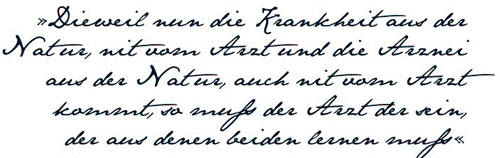 »Dieweil nun die Krankheit aus der
Natur, nit vom Arzt und die Arznei
aus der Natur, auch nit vom Arzt
kommt, so muß der Arzt der sein,
der aus denen beiden lernen muß«